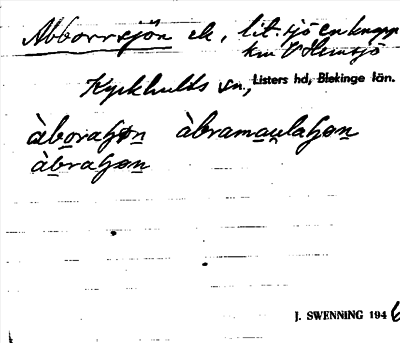 Abborrsjön ek, lit. sjö en knapp
km V Hemsjö
Kyrkhults sn, Listers hd, Blekinge län.
àboraʃøn àbramaulaʃøn
àbraʃøn
J. SWENNING 1946